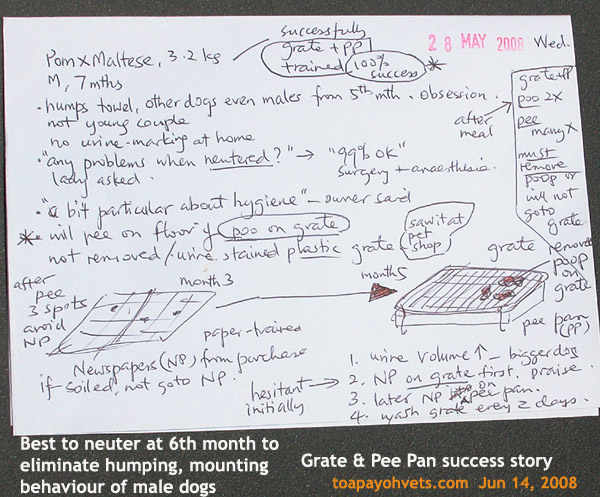 successfully
28 MAY 2008 Wed.
Pom x Maltese, 3.2 kg
grate + PP
trained 100%
success *
M, 7 mths
• humps towel, other dogs even males from 5th mth. Obsession.
not young couple
no urine-marking at home
• "any problems when neutered?" → "99% OK"
lady asked.
surgery + anaesthesia.
• "a bit particular about hygiene" - owner said
* will pee on floor if poo on grate
not removed/urine stained plastic grate
saw it at
pet
shop
after
meal
grate + PP
poo 2x
pee
many x
must
remove
poop or
will not
goto
grate
remove
poop
on
grate
after
pee
3 spots
avoid
NP
month 3
month 5
grate
pee pan
(PP)
paper-trained
Newspapers (NP) from purchase
if soiled, not goto NP.
hesitant →
initially
1. urine volume ↑ - bigger dog
2. NP on grate first, praise.
3. later NP on pee pan.
4. wash grate every 2 days.
Best to neuter at 6th month to
eliminate humping, mounting
behaviour of male dogs
Grate & Pee Pan success story
toapayohvets.com Jun 14, 2008